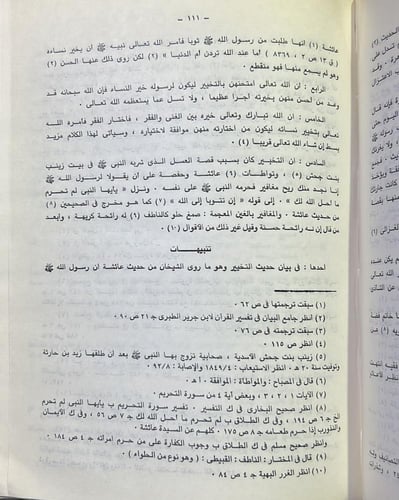 — ١١١ —
عائشة (١) انها طلبت من رسول الله ﷺ ثوبا فأمر الله تعالى نبيه ﷺ ان يخير نساءه
اما عند الله تردن أم الدنيا » (٢) لكن روى ذلك عنها الحسن (٢)
وهو لم يسمع منها فهو منقطع ·
الرابع : ان الله امتحنهن بالتخيير ليكون لرسوله خير النساء فإن الله سبحانه قد
وعد من احسن منهن بخيرته اجرا عظيما ، ولا تسل عما يستعظمه الله تعالى ·
الخامس : ان الله تبارك وتعالى خيره بين الغنى والفقر ، فاختار الفقر فأمره الله
تعالى بتخيير نسائه ليكون من اختارته منهن موافقة لاختياره ، وسيأتى لهذا الكلام مزيد
بسط إن شاء الله تعالى قريبا (٤) ·
السادس : ان التخيير كان بسبب قصة العسل الذى شربه النبى ﷺ فى بيت زينب
بنت جحش (٥) ، وتواطأت (٦) عائشة وحفصة على ان يقولا لرسول الله ﷺ
إنا نجد منك ريح مغافير فحرمه النبى ﷺ على نفسه · ونزل « يأيها النبى لم تحرم
ما أحل الله لك » · إلى قوله « إن تتوبا إلى الله » (٧) كما هو مخرج فى الصحيحين (٨)
من حديث عائشة · والمغافير بالغين المعجمة : صمغ حلو كالناطف (٩) له رائحة كريهة ، وأبعد
من قال إن له رائحة حسنة وقيل غير ذلك من الأقوال (١٠) ·
تنبيهات
أحدها : فى بيان حديث التخيير وهو ما روى الشيخان من حديث عائشة ان رسول الله ﷺ
(١) سبقت ترجمتها فى ص ٦٢ ·
(٢) أنظر جامع البيان فى تفسير القرآن لابن جرير الطبرى ج ٢١ ص ٩٠ ·
(٣) سبقت ترجمته فى ص ٧٦ ·
(٤) انظر ص ١١٥ ·
(٥) زينب بنت جحش الأسدية ، صحابية تزوج بها النبى ﷺ بعد ان طلقها زيد بن حارثة
وتوفيت سنة ٢٠ هـ · انظر الاستيعاب : ١٨٤٩/٤ والإصابة : ٩٢/٨ ·
(٦) قال فى المصباح : والمواطأة : الموافقة ٠ أ هـ ·
(٧) الآيات ١ ، ٢ ، ٣ ، وبعض آية ٤ من سورة التحريم ·
(٨) أنظر صحيح البخارى فى ك التفسير · تفسير سورة التحريم ب يأيها النبى لم تحرم
الخ ج ٦ ص ١٩٤ ، وفى ك الطلاق ب لم تحرم ما أحل الله لك ج ٧ ص ٥٦ ، وفى ك الأيمان
والنذور ب إذا حرم طعامه ج ٨ ص ١٧٥ · كلهم عن السيدة عائشة
وانظر صحيح مسلم ك الطلاق ب وجوب الكفارة على من حرم امرأته ج ٤ ص ١٨٤ ·
(٩) قال فى المختار : الناطف : القبيطى : ( وهو نوع من الحلواء ) ·
(١٠) أنظر الغرر البهية ج ٤ ص ٨٤ ·